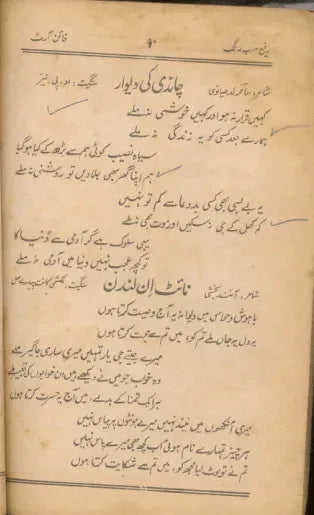 فائن آرٹ
۹۰
چاندی کی دیوار
شاعر: ساحر لدھیانوی
کہیں قرار نہ ہو اور کہیں خوشی نہ ملے
ہمارے بعد کسی کو یہ زندگی نہ ملے
سیاہ نصیب کوئی ہم سے بڑھ کے کیا ہوگا
ہم اپنا گھر بھی جلا دیں تو روشنی نہ ملے
یہ بے بسی بھی کسی بددعا سے کم تو نہیں
کہ کھل کے جی نہ سکیں اور موت بھی نہ ملے
یہی سلوک ہے گر آدمی سے دُنیا کا
تو کچھ عجب نہیں دنیا میں آدمی نہ ملے
نائٹ اِن لندن
شاعر: آنند بخشی
سنگیت: لکشمی کانت پیارے لال
باہوش و حواس میں دیوانہ یہ آج وصیت کرتا ہوں
یہ دل یہ جاں ملے تم کو، میں تم سے محبت کرتا ہوں
میرے جیتے جی یار تمہیں میری ساری جاگیر ملے
وہ خواب جو میں نے دیکھے ہیں ان خوابوں کی تعبیر ملے
ہر ایک تمنا کے بدلے، میں آج یہ حسرت کرتا ہوں
میری آنکھوں میں نیند نہیں میرے ہونٹوں پہ پیاس نہیں
ہر چیز تمہارے نام ہوئی اب کچھ بھی میرے پاس نہیں
تم نے تو لوٹ لیا مجھ کو، میں تم سے شکایت کرتا ہوں